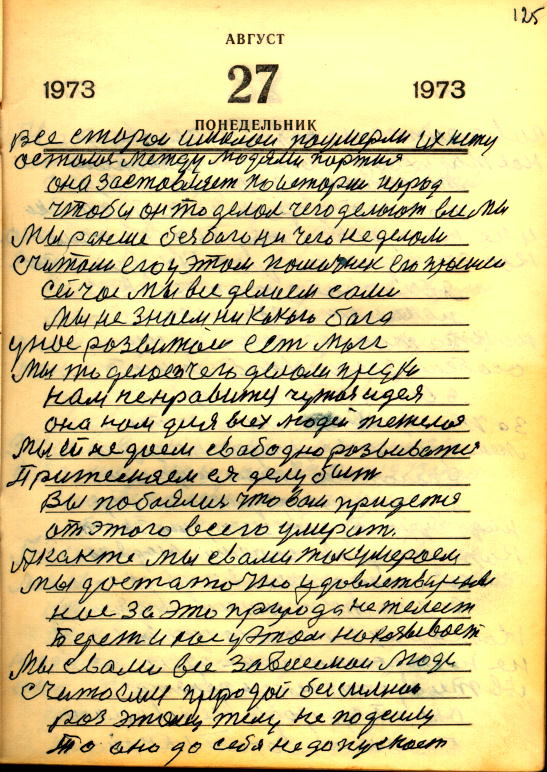 125
АВГУСТ
1973 27 1973
ПОНЕДЕЛЬНИК
все старои умали поумерли их нету
остался между людями партия
она заставляет по истории народ
чтобы он то делол чего делают все мы
Мы ранше без бога ни чего не делом
Считали его у этом помошник его
сейчас мы все делаем сами
мы не знаем ни какого бога
у нас розвитои ест мозг
мы то делоем чего делоли предки
нам ненравитц чужая идея
она нам для всех людей тежелая
Мы ей не доем свабодно розвиватя
Притесняем ея делу быт
Вы побоялис что вам придетя
от этого всего умерат.
А как же мы свами так умераем
мы достаточно удовлетваренои
нас за это природа не желеет
Берет и нас у этом наказывает
Мы свами все зависимои люди
Считаемся природой безсилнои
роз этому телу не подсилу
то оно до себя недопускает